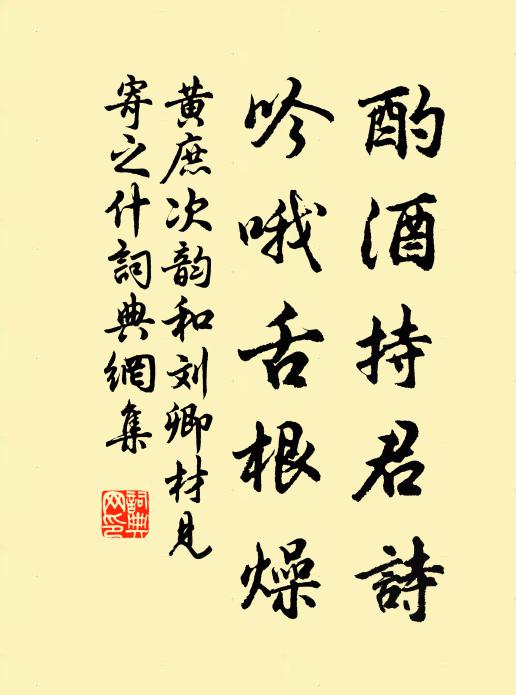 酌酒持君詩
吟哦舌根燥
黄庶次韵和刘卿材見
寄之什詞典網集
詞典
网印